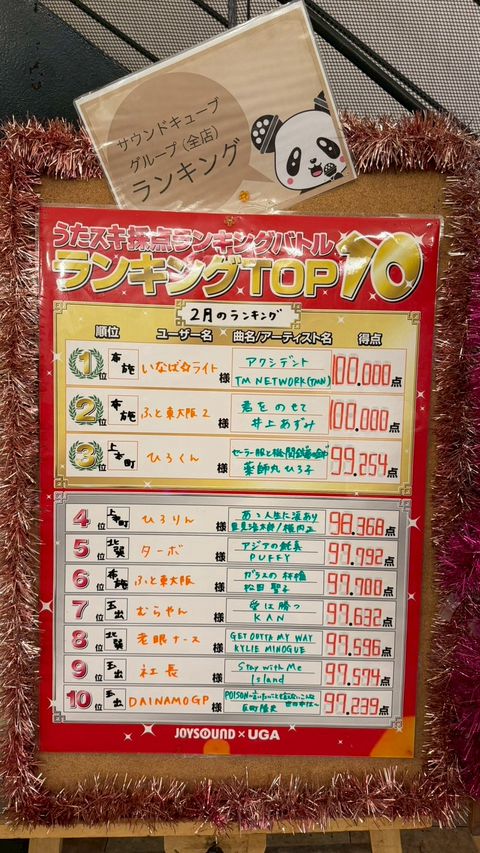 サウンドキューブ
グループ(全店)
ランキング
うたスキ採点ランキングバトル
ランキングTOP10
2月のランキング
順位 ユーザー名 曲名/アーティスト名 得点
1位 布施 いなば☆ライト様 アクシデント 100.000点
TM NETWORK(TMN)
2位 布施 ふと東大阪2様 君をのせて 100.000点
井上あずみ
3位 上本町 ひろくん様 セーラー服と機関銃 99.254点
薬師丸ひろ子
4位 上本町 ひろりん様 あゝ人生に涙あり 98.368点
里見浩太朗/横内正
5位 北巽 ターボ様 アジアの純真 97.792点
PUFFY
6位 布施 ふと東大阪様 ガラスの林檎 97.700点
松田聖子
7位 玉出 むらやん様 愛は勝つ 97.632点
KAN
8位 北巽 老眼ナース様 GET OUTTA MY WAY 97.596点
KYLIE MINOGUE
9位 玉出 社長様 Stay with Me 97.574点
Island
10位 玉出 DAINAMOGP様 POISON~言いたいことも言えないこんな世の中は~ 97.239点
反町隆史
JOYSOUND×UGA